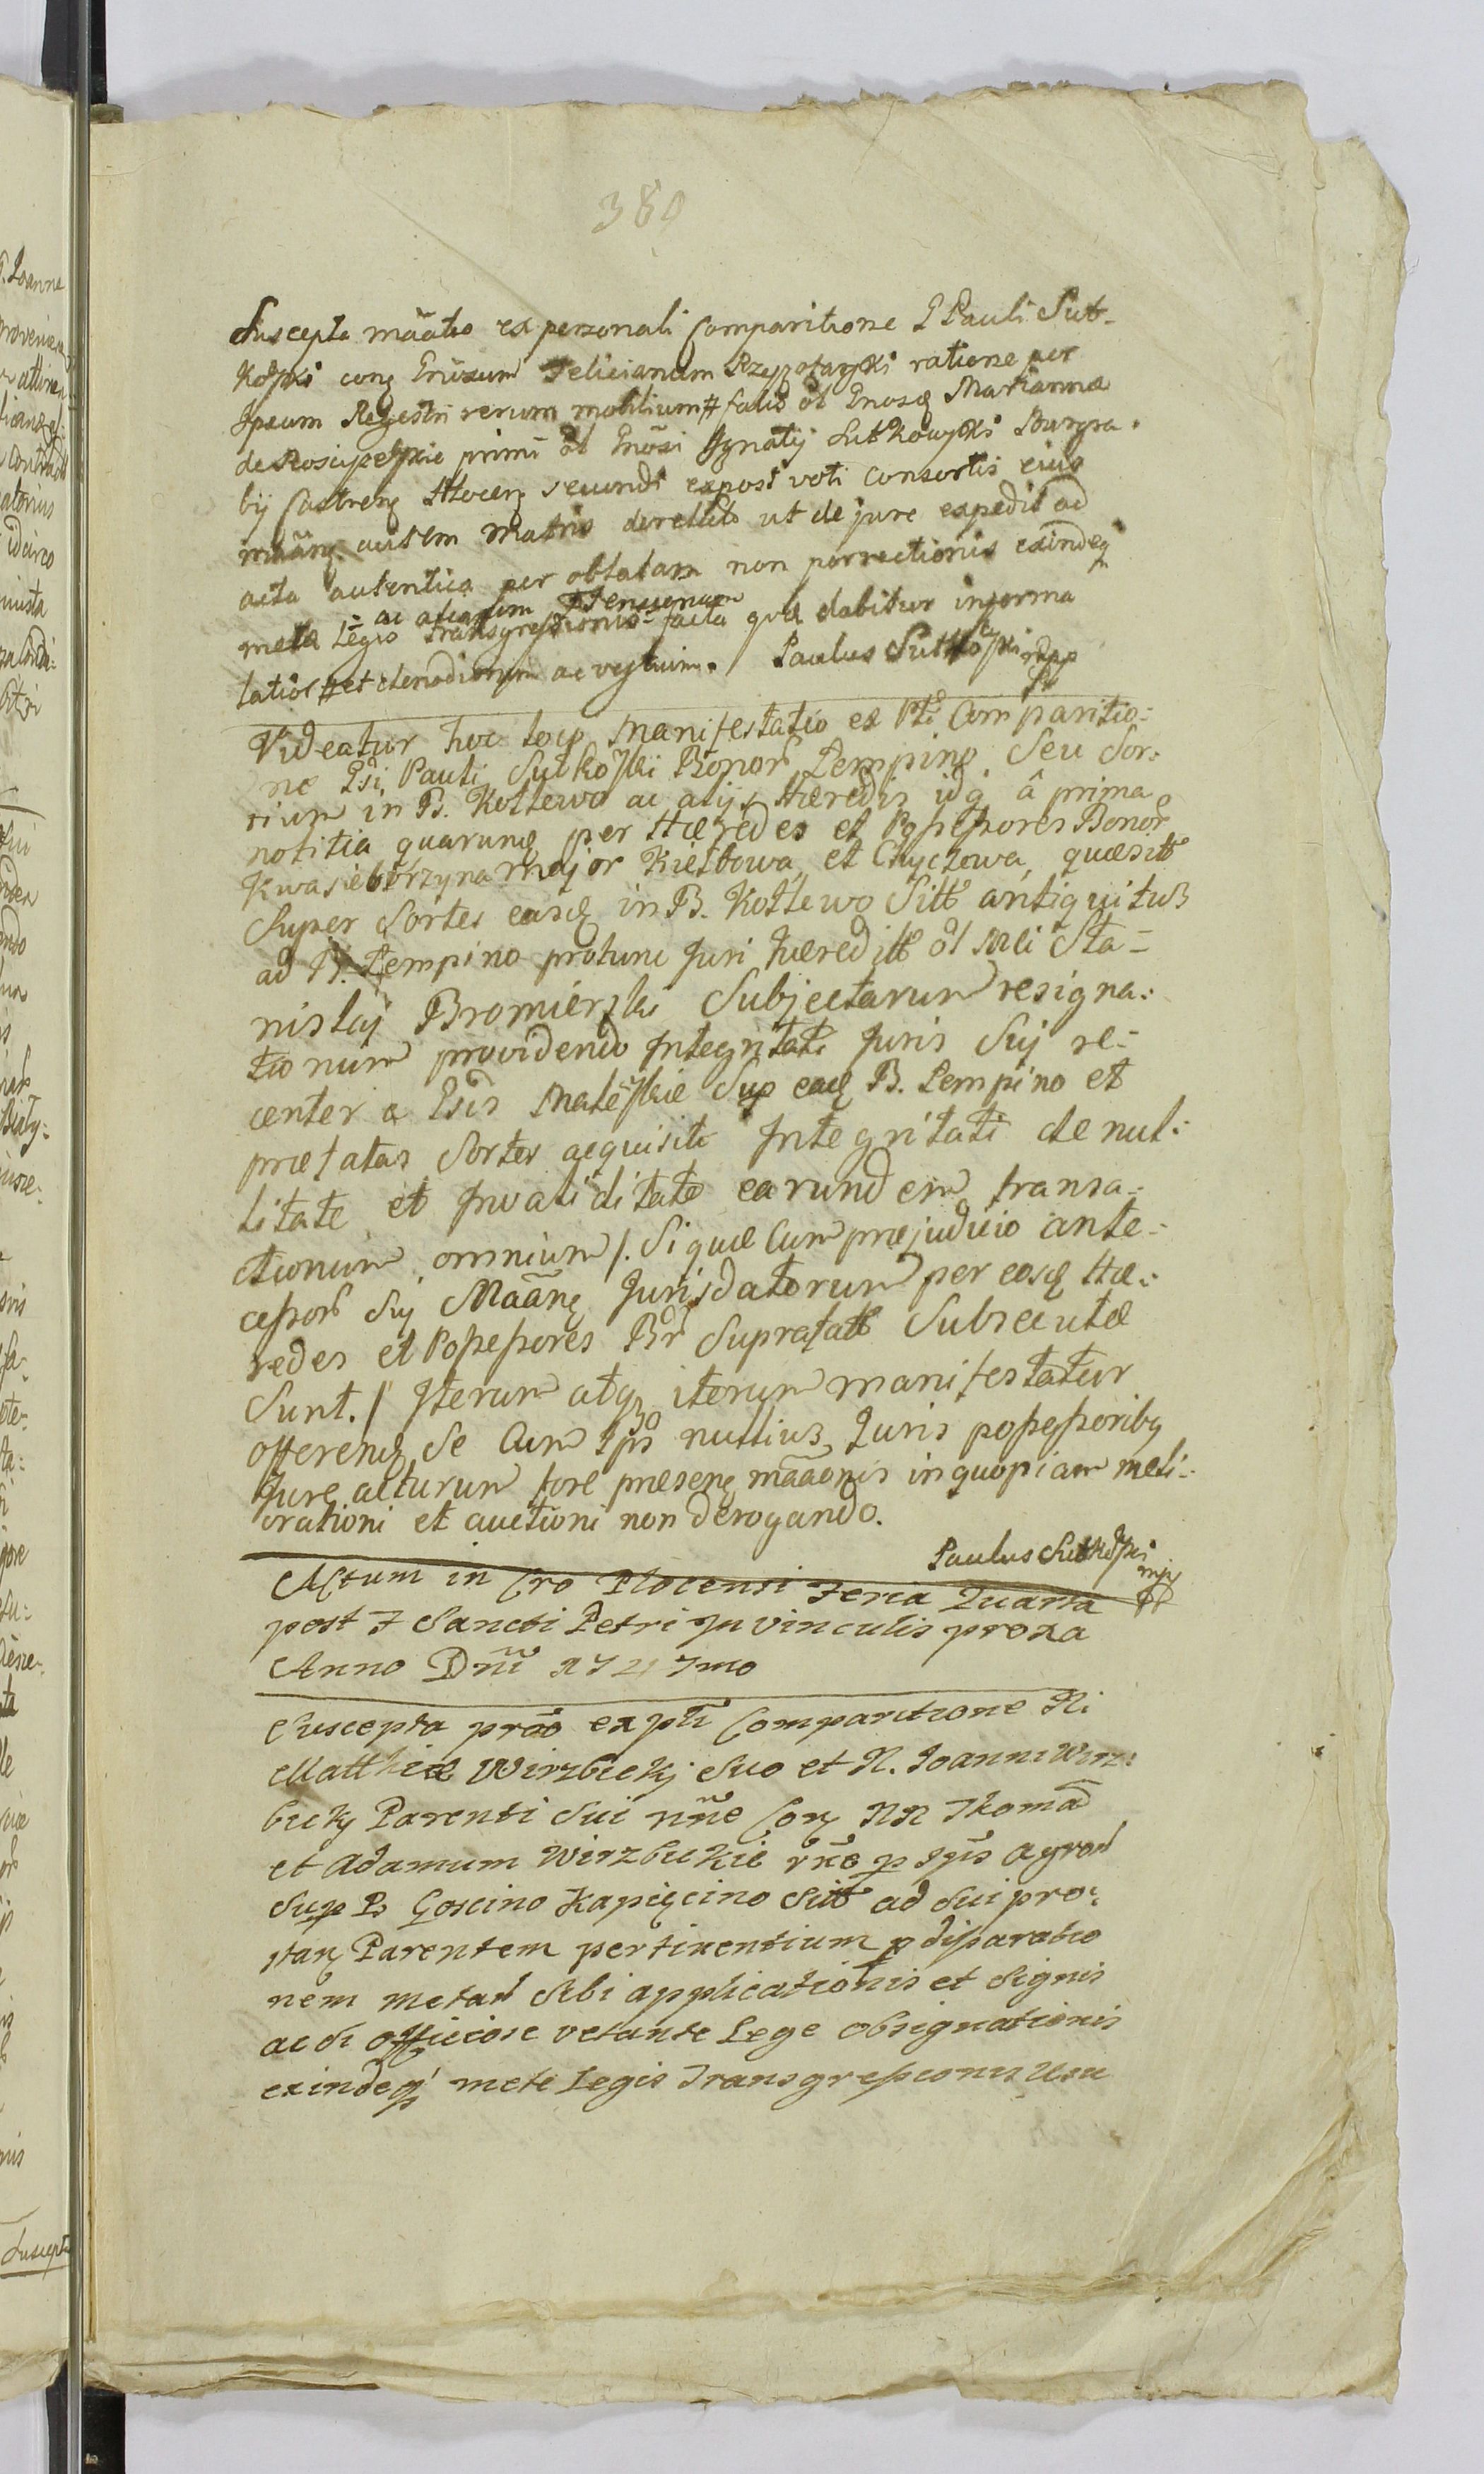 380
Suscepta mãatio ex personali Comparitione P Pauli Sut-
ko̅ſki conq Gnõsum Felicianum Szypotarſki ratione per
Ipsum Regestri rerum mobilium # falso ol Gnosæ Mariannæ
de Rosciſzeſkie primi ol Gnõsi Ignatij Sutkowſki Burgra.
bij Castrenq Plocenq secundi exposi voti Consortis eius
mãanq autem Matris derelicto ut de jure expedit ad
acta autentica per oblatam non porrectionis exindeq
ac aliarum
metæ Legis transgreſsionis facta quæ dabitur in forma
latiori # et clenodiorum ac vestium. Paulus Sutkoſki mpp
Videatur hoc loco Manifestatio ex Pli Comparitio:
ne Psi Pauli Sutkoſki Bonor Lempino Seu Sor:
tium in B. Kotlewo ac alijs Hæredis idq â prima
notitia quarunq per Hæredes et Poſseſsores Bonor
Kwasieborzyna major Kiełbowa et Chyczewa quæsitt
Super Sortes easq in B. Kotlewo Sitt antiquitus
ad B. Lempino protunc Juri hæreditt ol Mci Sta-
nislaj Bromierski Subjectarum resigna:
tionum providendo Integritati Juris Suj re-
center a Psis Maleſkie Sup eaq B. Lempino et
præfatas Sortes acquisiti Integritati de nul:
litate et Invaliditate earundem transa:
ctionum omnium /. Si quæ Cum præjudicio ante-
ceſsor Suj Mãanq Jurisdatorum per eosq Hæ:
redes et Poſseſsores Br Suprafatt Subsecutæ
Sunt. / Iterum atqz iterum manifestatur
offerenq Se Cum Ips nullius Juris poſseſsoribq
Jure acturum fore præsenq mãaonis in quopiam meli:
orationi et auctioni non derogando.
Paulus Sutkoſki mpp
Actum in Cro Plocensi Feria Quarta
post F Sancti Petri In vinculis proxa
Anno Dñi 1727mo
Suscepta prãõ ex pli Comparitione Ni
Matthiæ Wirzbickj Suo et N. Joanni Wirz:
bickj Parenti Sui nñe Conq NN Thomã
et Adamum Wirzbickie rñe p Ipõs agror
Sup B Goscino Kapięcino Sitt ad Sui pro:
stanq Parentem pertinentium p diſparatio
nem metar Sibi applicationis et Signis
ac di officiose vetante Lege obsignationis
exindeq metæ Legis Transgreſsionis Usu